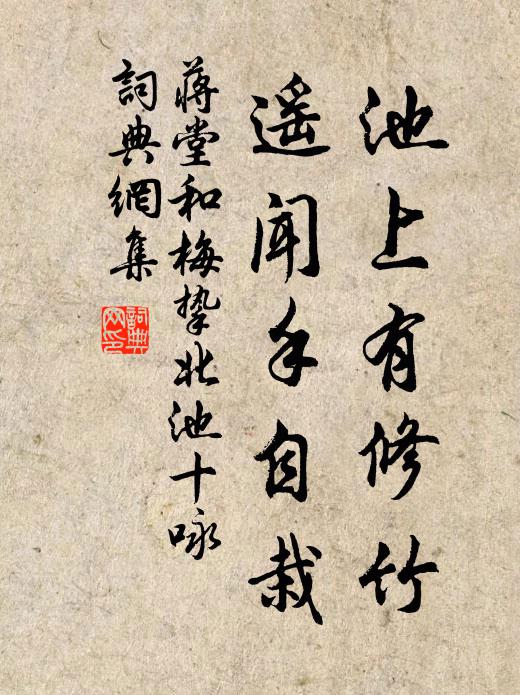 池上有修竹
遥闻手自栽
蒋堂和梅挚北池十咏
詞典網集
詞典网印